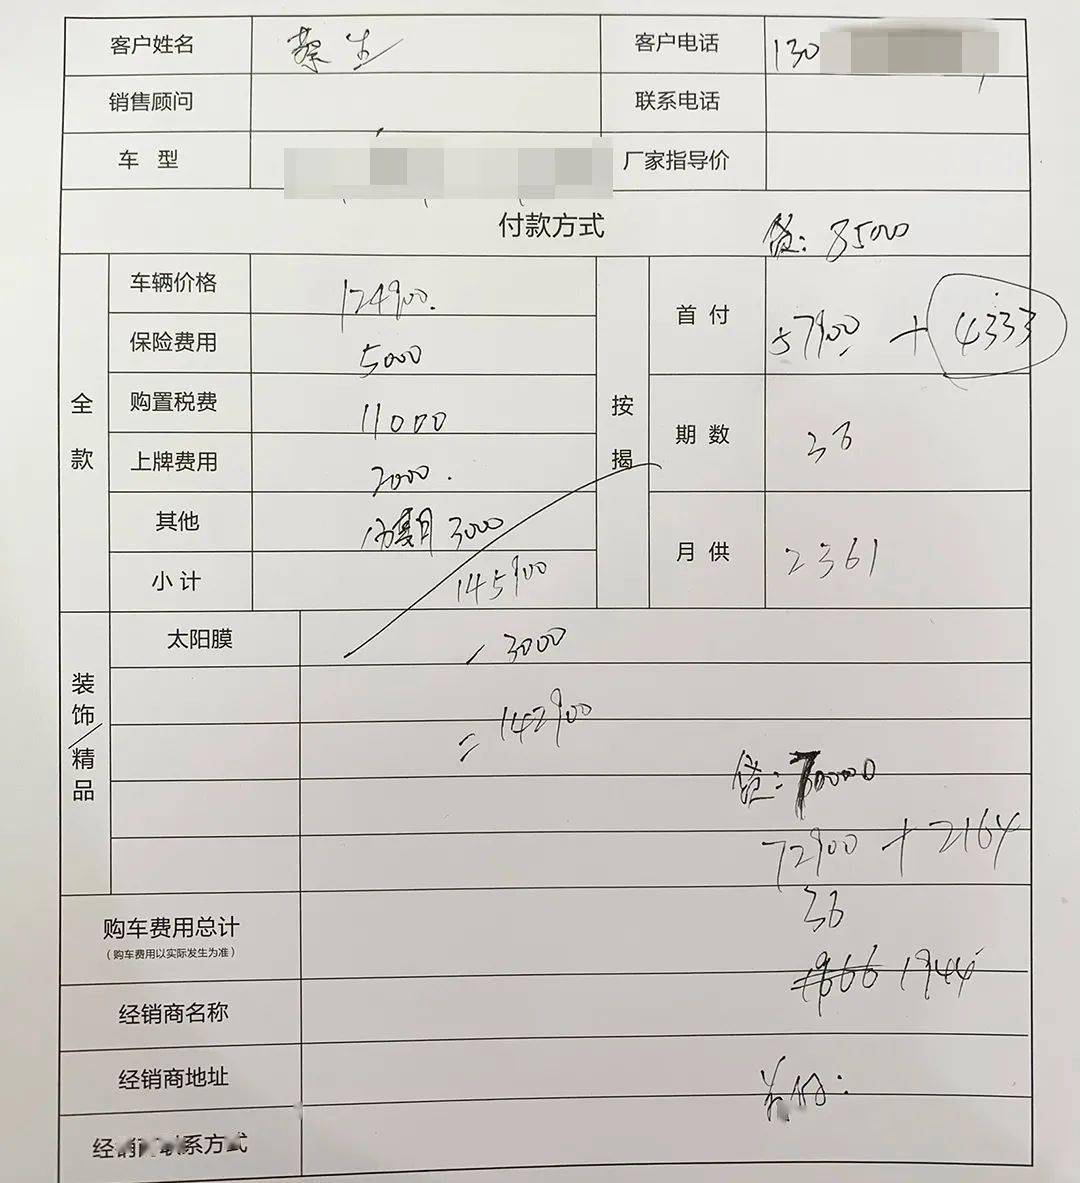 客户姓名 蔡生 客户电话 130
销售顾问 联系电话
车 型 厂家指导价
付款方式 贷：85000
全款
车辆价格 124900.
保险费用 5000
购置税费 11000
上牌费用 2000.
其他 3000
小计 145900
按揭
首付 57900 + 4333
期数 36
月供 2361
装饰/精品
太阳膜 - 3000
= 142900
贷：70000
72900 + 2164
36
1966 1944
购车费用总计
（购车费用以实际发生为准）
经销商名称
经销商地址
经销商联系方式